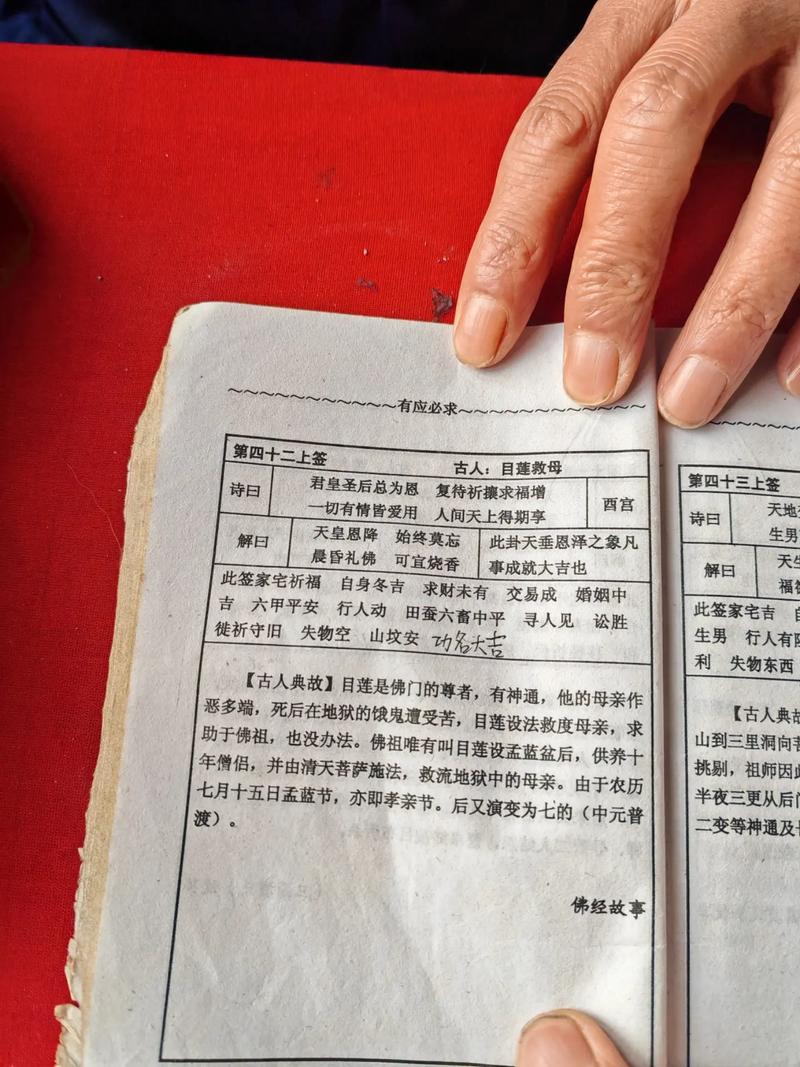 ～～～～～～～～～～～～有应必求～～～～～～～～～～～～～
第四十二上签 古人：目莲救母
诗曰 君皇圣后总为恩 复待祈攘求福增
一切有情皆爱用 人间天上得期享
西宫
解曰 天皇恩降 始终莫忘
晨昏礼佛 可宜烧香
此卦天垂恩泽之象凡
事成就大吉也
此签家宅祈福 自身冬吉 求财未有 交易成 婚姻中
吉 六甲平安 行人动 田蚕六畜中平 寻人见 讼胜
徙祈守旧 失物空 山坟安 功名大吉
【古人典故】目莲是佛门的尊者，有神通，他的母亲作
恶多端，死后在地狱的饿鬼遭受苦，目莲设法救度母亲，求
助于佛祖，也没办法。佛祖唯有叫目莲设孟蓝盆后，供养十
年僧侣，并由清天菩萨施法，救流地狱中的母亲。由于农历
七月十五日孟蓝节，亦即孝亲节。后又演变为七的（中元普
渡）。
佛经故事
第四十三上签
诗曰 天地
生男
解曰 天生
福
此签家宅吉
生男 行人有
利 失物东西
【古人典故
山到三里洞向
挑剔，祖师因此
半夜三更从后门
二变等神通及